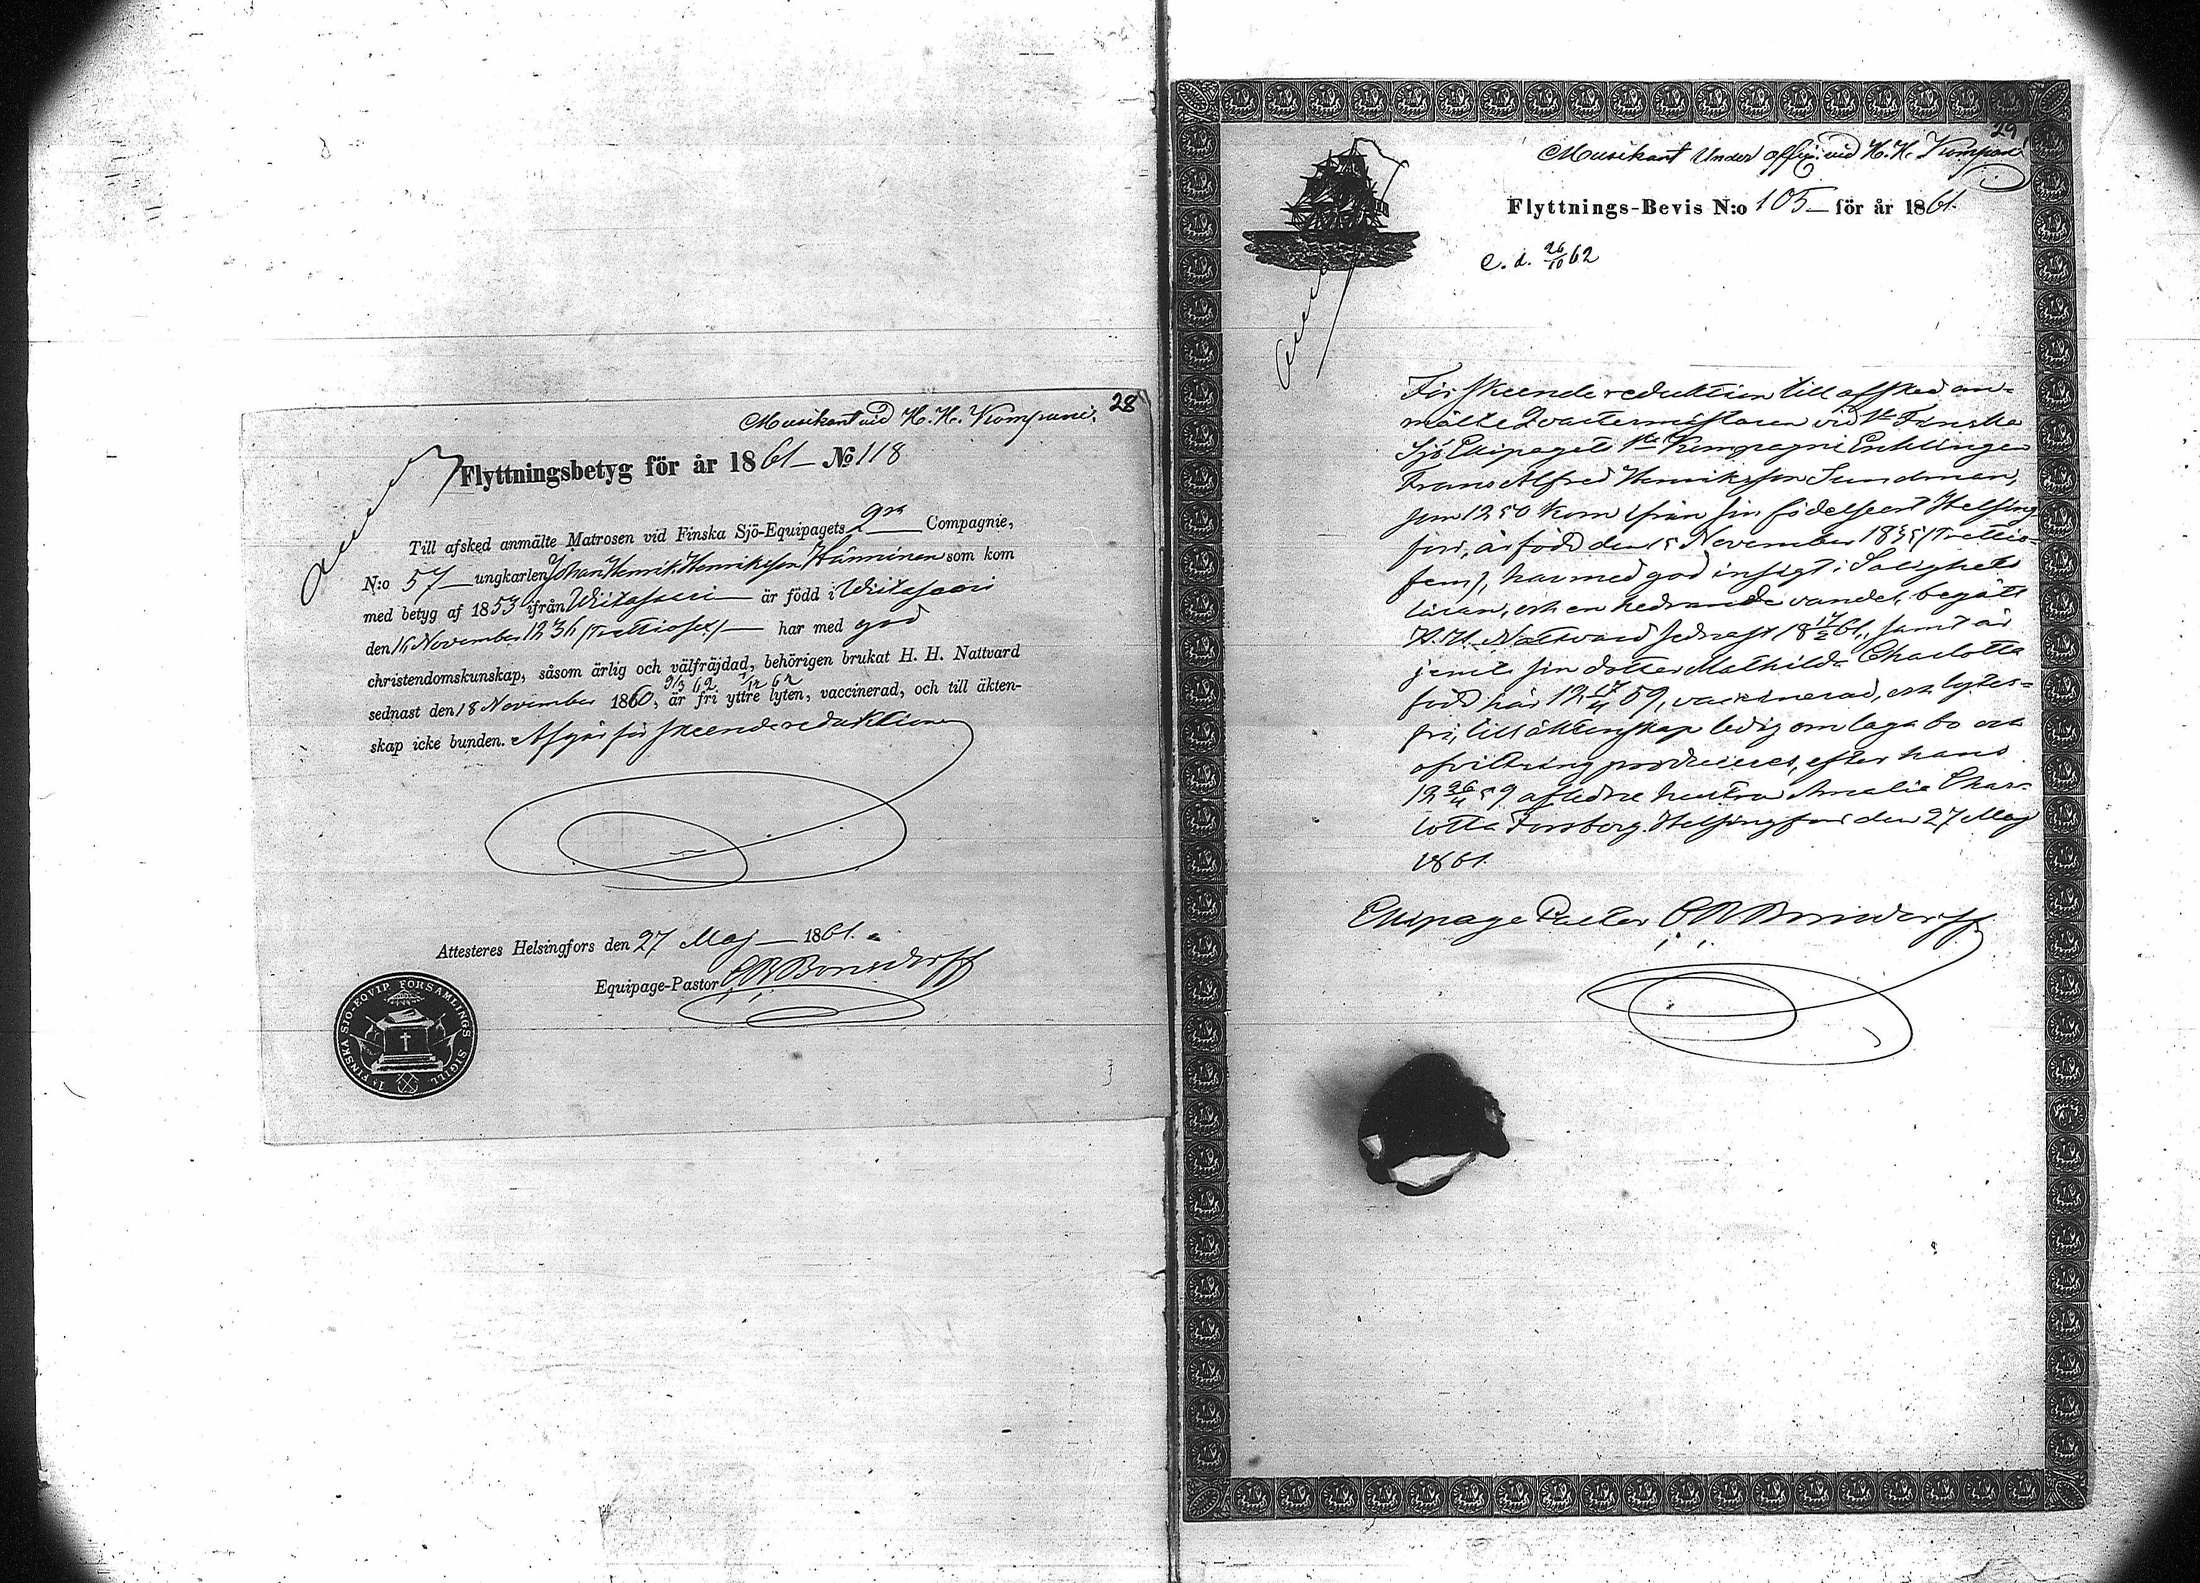 28
Musikant vid H. H. Kompani.
Flyttningsbetyg för år 1861 – No 118
Till afsked anmälte Matrosen vid Finska Sjö-Equipagets 2ra Compagnie,
N:o 57 – ungkarlen Johan Henrik Henriksson Hänninen som kom
med betyg af 1853 ifrån Wiitasaari – är född i Wiitasaari
den 16 November 1836 /Trettiosex/ – har med god
christendomskunskap, såsom ärlig och välfräjdad, behörigen brukat H. H. Nattvard
9/3 62 7/12 62
sednast den 18 November 1860, är fri yttre lyten, vaccinerad, och till äkten-
skap icke bunden. Afgår för skeende reduktion
Attesteres Helsingfors den 27 Maj – 1861.
Equipage-Pastor C R Bonsdorff
1a FINSKA SJÖ-EQVIP FÖRSAMLINGS SIGILL
29
Musikant Under offic. vid H. H. Kompani
Flyttnings-Bevis N:o 105 – för år 1861.
C. d. 26/10 62
För skeende reduktion till afsked an-
mälte Qvartermästaren vid 1sta Finska
Sjö Ekipagets 1sta Kompagni Enklingen
Frans Alfred Henriksson Sundman,
som 1850 kom ifrån sin födelseort Helsing
fors, är född den 15 November 1835 /Trettio-
fem/, har med god insigt i Salighets
läran, och en hedrande vandel, begått
H. H. Nattvard sednast 18 17/2 61, samt är
jemte sin dotter Mathilda Charlotta
född här 18 17/4 59, vaccinerad, och lytes-
fri, till äktenskap ledig om laga bo och
afvittring produceres, efter hans
18 26/4 59 aflidne hustru Amalia Char-
lotta Forsberg. Helsingfors den 27 Maj
1861.
Ekipage Pastor C R Bonsdorff